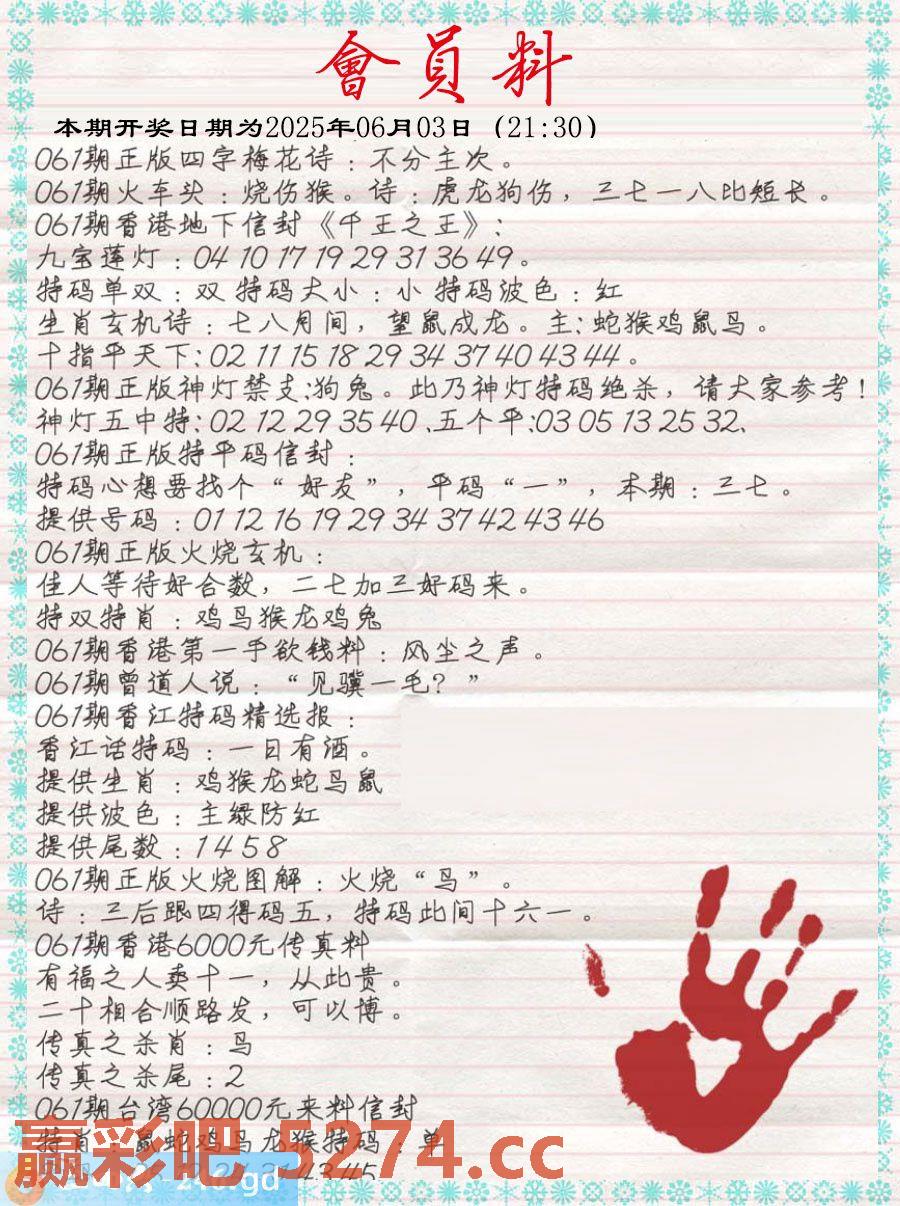 會員料
本期开奖日期为2025年06月03日（21:30）
061期正版四字梅花诗：不分主次。
061期火车头：烧伤猴。诗：虎龙狗伤，三七一八比短长。
061期香港地下信封《千王之王》：
九宝莲灯：04 10 17 19 29 31 36 49。
特码单双：双 特码大小：小 特码波色：红
生肖玄机诗：七八月间，望鼠成龙。主：蛇猴鸡鼠鸟。
十指平天下：02 11 15 18 29 34 37 40 43 44。
061期正版神灯禁支：狗兔。此乃神灯特码绝杀，请大家参考！
神灯五中特：02 12 29 35 40、五个平：03 05 13 25 32、
061期正版特平码信封：
特码心想要找个“好友”，平码“一”，本期：三七。
提供号码：01 12 16 19 29 34 37 42 43 46
061期正版火烧玄机：
佳人等待好合数，二七加三好码来。
特双特肖：鸡鸟猴龙鸡兔
061期香港第一手欲钱料：风尘之声。
061期曾道人说：“见骥一毛？”
061期香江特码精选报：
香江话特码：一日有酒。
提供生肖：鸡猴龙蛇鸟鼠
提供波色：主绿防红
提供尾数：1 4 5 8
061期正版火烧图解：火烧“鸟”。
诗：三后跟四得码五，特码此间十六一。
061期香港6000元传真料
有福之人卖十一，从此贵。
二十相合顺路发，可以博。
传真之杀肖：鸟
传真之杀尾：2
061期台湾60000元来料信封
特肖：鼠蛇鸡鸟龙猴特码：单
赢彩吧.5274.cc
43 45
246.gd